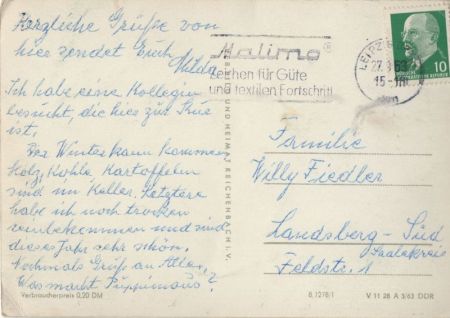 Herzliche Grüße von
hier sendet Euch
Hilda
Ich habe eine Kollegin
besucht, die hier zur Kur
ist.
Der Winter kann kommen
Holz, Kohle, Kartoffeln
sind im Keller. Letztere
habe ich noch trocken
reinbekommen und sind
dieses Jahr sehr schön.
Nochmals Grüße an Alle.
Was macht
Verbraucherpreis 0,20 DM
Malimo
Zeichen für Güte
und textilen Fortschritt
LEIPZIG
15-
10
UND HEIMAT REICHENBACH I. V.
Familie
Willy Fiedler
Landsberg-Süd
Saalekreis
Feldstr. 1
V 11 28 A 3/63 DDR